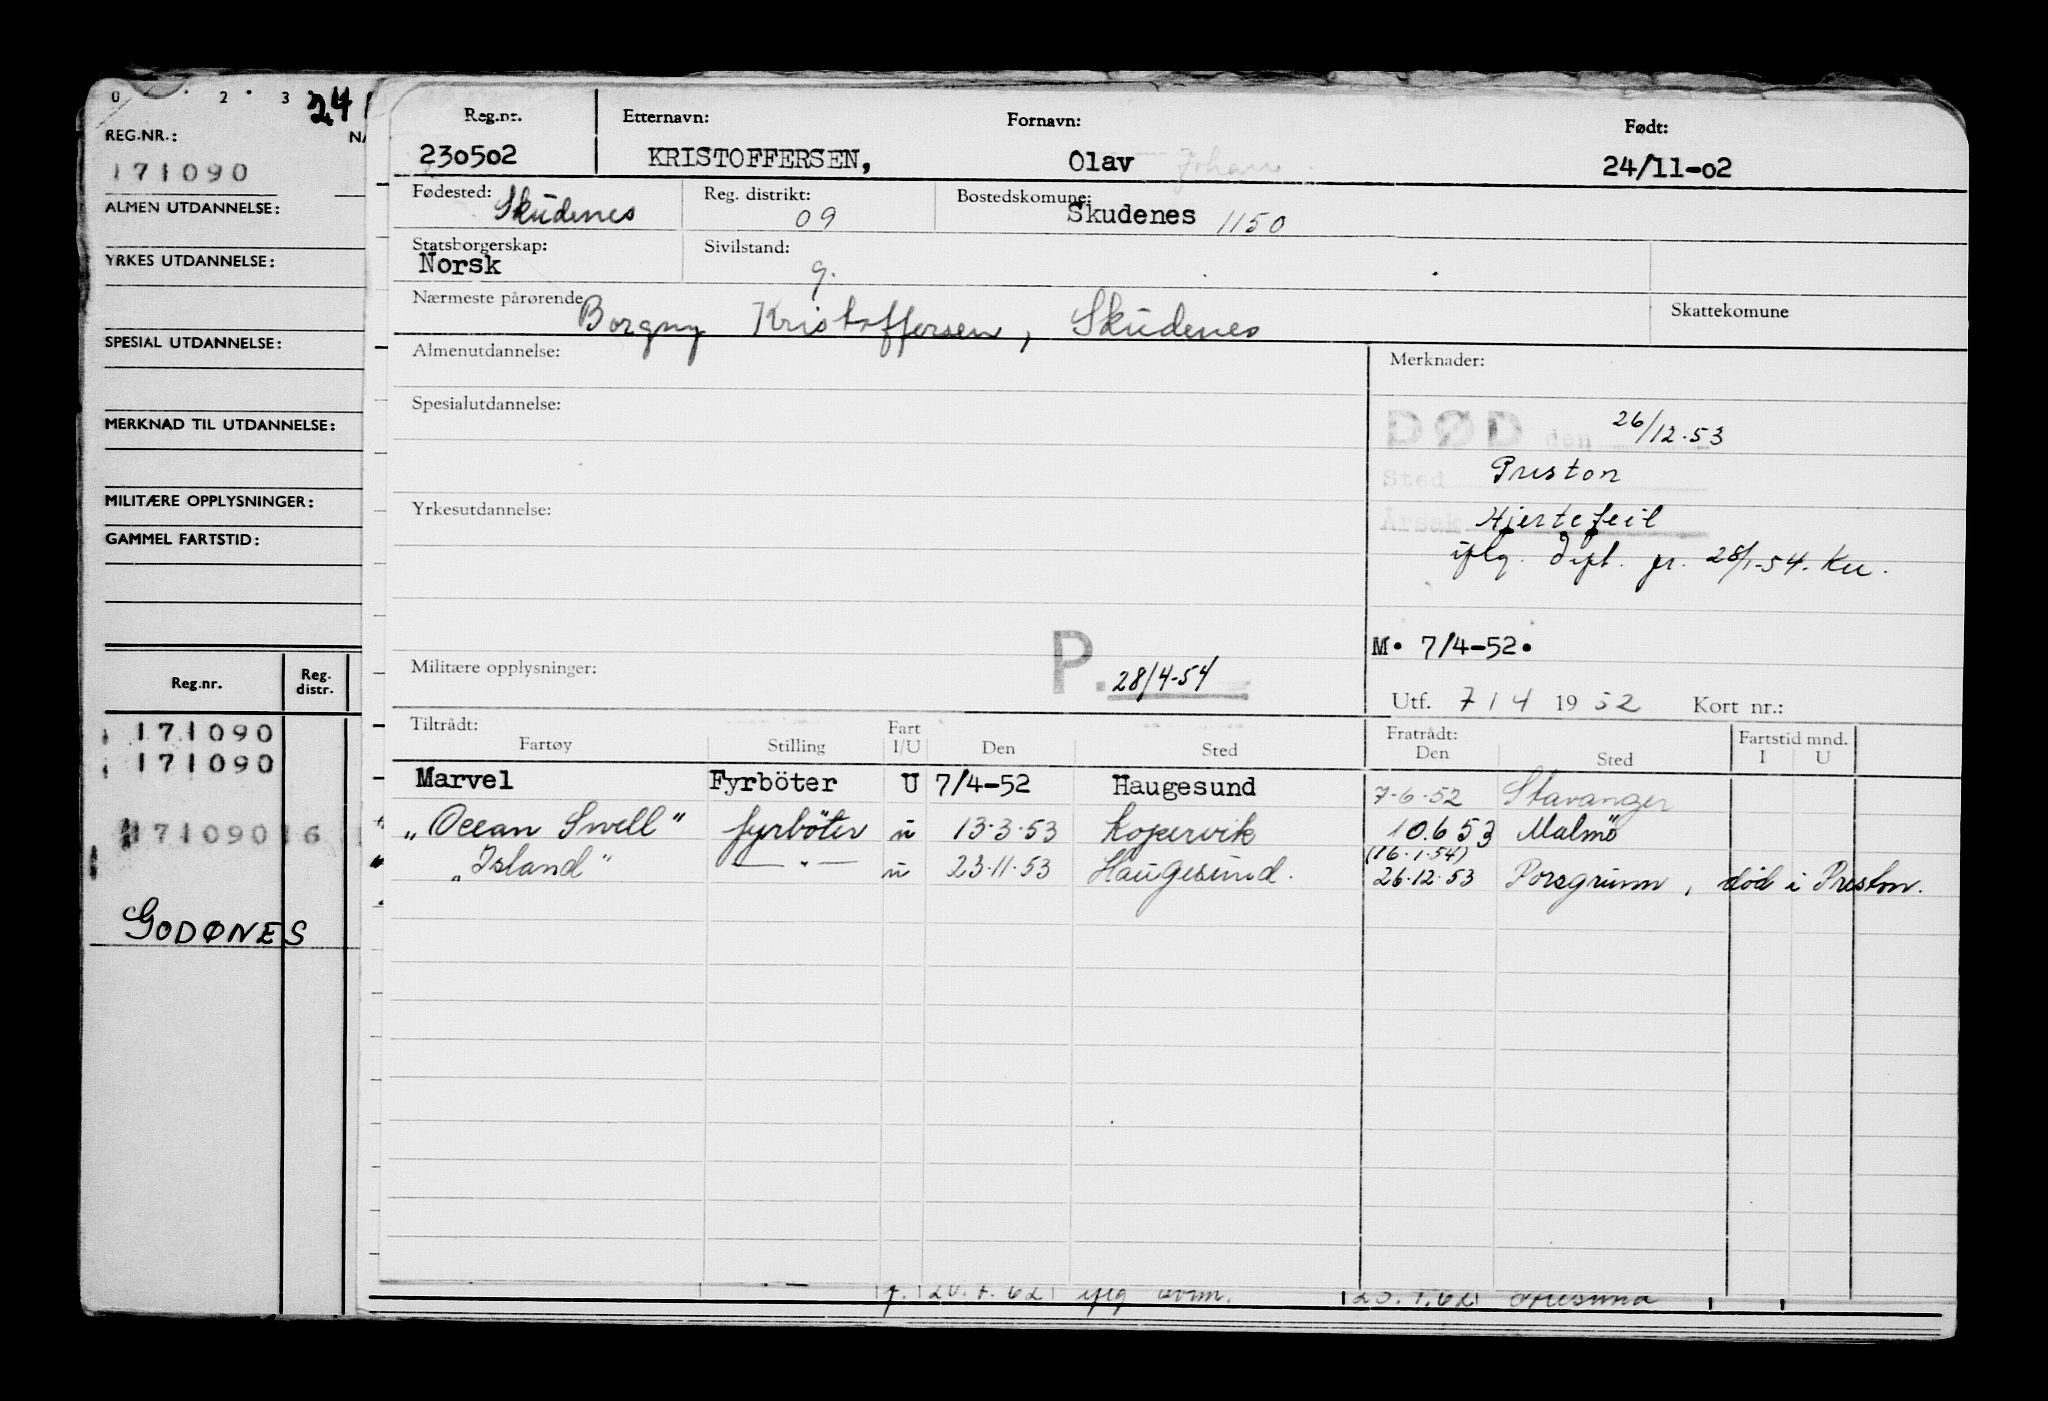 0 2 3 24
REG.NR.:
171090
ALMEN UTDANNELSE:
YRKES UTDANNELSE:
SPESIAL UTDANNELSE:
MERKNAD TIL UTDANNELSE:
MILITÆRE OPPLYSNINGER:
GAMMEL FARTSTID:
Reg.nr. Reg. distr.
171090
171090
171090 6
GODØNES
Reg.nr. Etternavn: Fornavn: Født:
230502 KRISTOFFERSEN, Olav Johan 24/11-02
Fødested: Skudenes Reg. distrikt: 09 Bostedskomune: Skudenes 1150
Statsborgerskap: Norsk Sivilstand: g.
Nærmeste pårørende Borgny Kristoffersen, Skudenes Skattekomune
Almenutdannelse: Merknader:
Spesialutdannelse:
DØD den 26/12.53
Sted Preston
Yrkesutdannelse:
Årsak Hjertefeil
iflg. 28/1-54.
M. 7/4-52.
Militære opplysninger: P. 28/4-54
Utf. 7 / 4 19 52 Kort nr.:
Tiltrådt: Fartøy Stilling Fart I/U Den Sted Fratrådt: Den Sted Fartstid mnd. I U
Marvel Fyrböter U 7/4-52 Haugesund 7.6.52 Stavanger
"Ocean Swell" fyrböter u 13.3.53 Kopervik 10.6 53 Malmö
(16.1.54)
"Island" — " — u 23.11.53 Haugesund. 26.12.53 Porsgrunn, död i Preston.